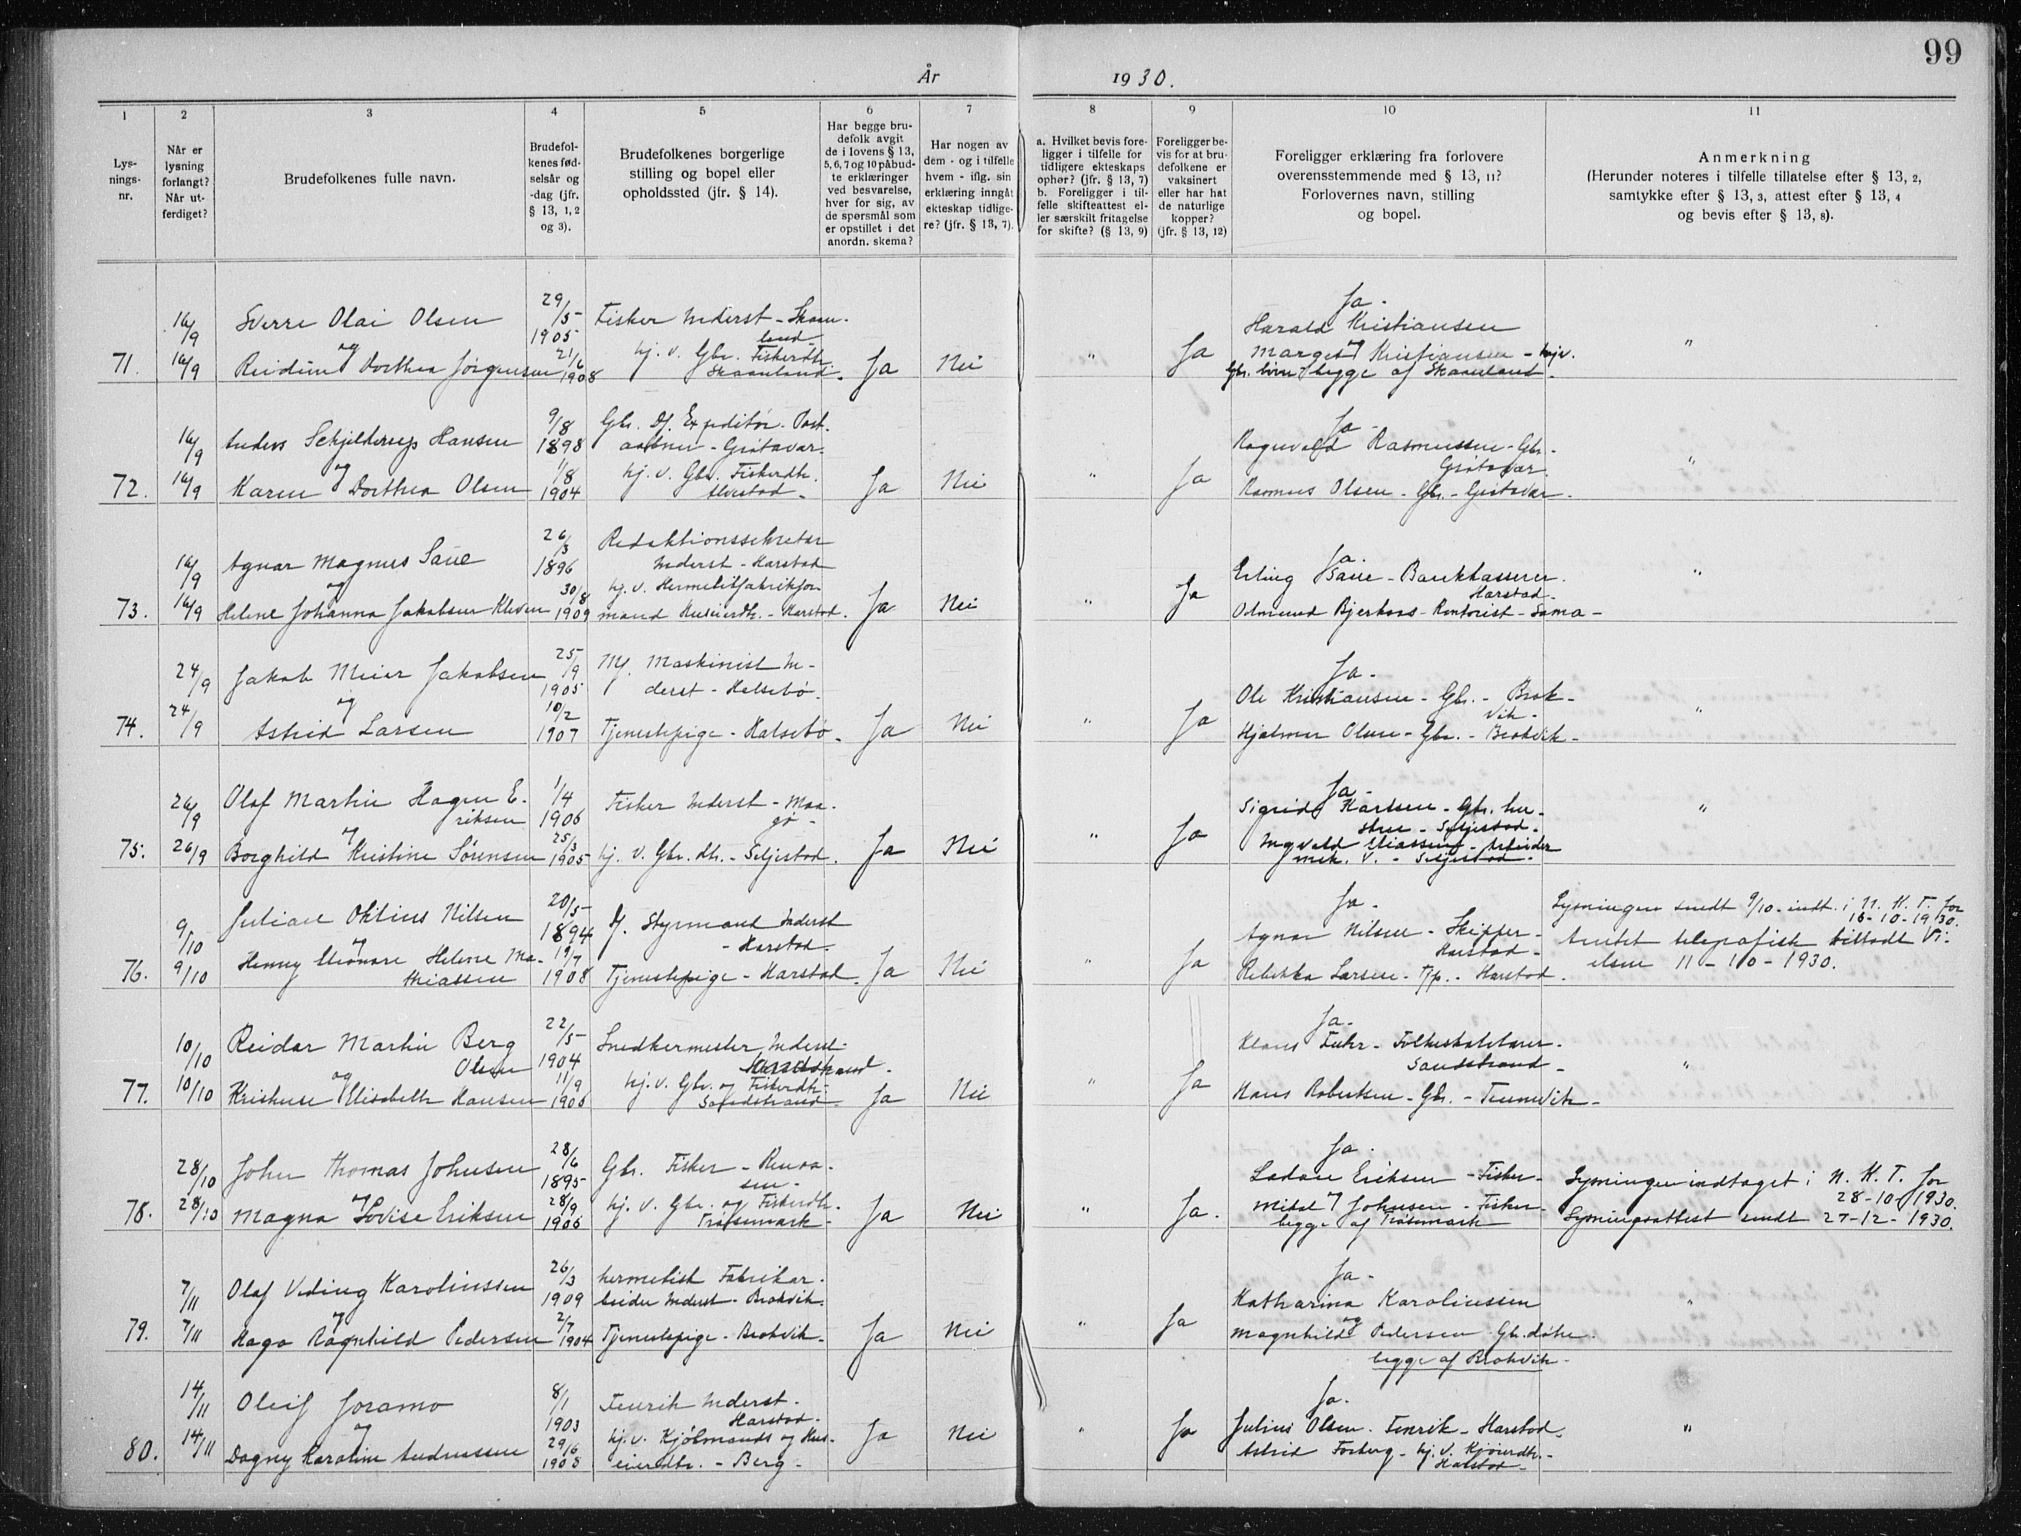 99
År 1930.
1
2
3
4
5
6
7
8
9
10
11
Lys-
nings-
nr.
Når er
lysning
forlangt?
Når ut-
ferdiget?
Brudefolkenes fulle navn.
Brudefol-
kenes fød-
selsår og
-dag (jfr.
§ 13, 1, 2
og 3).
Brudefolkenes borgerlige
stilling og bopel eller
opholdssted (jfr. § 14).
Har begge bru-
defolk avgit
de i lovens § 13,
5, 6, 7 og 10 påbud-
te erklæringer
ved besvarelse,
hver for sig, av
de spørsmål som
er opstillet i det
anordn. skema?
Har nogen av
dem - og i tilfelle
hvem - iflg. sin
erklæring inngåt
ekteskap tidlige-
re? (jfr. § 13, 7).
a. Hvilket bevis fore-
ligger i tilfelle for
tidligere ekteskaps
ophør? (jfr. § 13, 7)
b. Foreligger i til-
felle skifteattest el-
ler særskilt fritagelse
for skifte? (§ 13, 9)
Foreligger be-
vis for at bru-
defolkene er
vaksinert
eller har hat
de naturlige
kopper?
(jfr. § 13, 12)
Foreligger erklæring fra forlovere
overensstemmende med § 13, 11?
Forlovernes navn, stilling
og bopel.
Anmerkning
(Herunder noteres i tilfelle tillatelse efter § 13, 2,
samtykke efter § 13, 3, attest efter § 13, 4
og bevis efter § 13, 8).
71.
16/9
16/9
Sverre Olai Olsen
og
Reidun Dorthea Jørgensen
29/5 1905
21/6 1908
Fisker Inderst - Skaan-
land -
hj. v. Gbr. Fiskerdtr.
Skaanland.
Ja
Nei
"
Ja
Ja -
Harald Kristiansen
Marget Kristiansen -
begge af Skaanland -
"
72.
16/9
16/9
Anders Schjelderup Hansen
og
Karen Dorthea Olsen
9/8 1898
1/8 1904
Gbr. Df. Expeditør - Post-
aabner - Grøtavær.
hj. v. Gbr. Fiskerdtr.
Ja
Nei
"
Ja
Ja -
Ragnvald Rasmussen - Gbr.
Grøtavær.
Rasmus Olsen - Gbr. - Grøtavær.
"
73.
16/9
16/9
Agnar Magnus Saue
og
Helene Johanna Jakobsen Kleven
26/3 1896
30/8 1909
Redaktionssekretær
Inderst - Harstad
hj. v. Hermetikfabrikfor-
mand Huseierdtr. - Harstad.
Ja
Nei
"
Ja
Ja -
Erling Saue - Bankkasserer.
Harstad -
Odmund Bjerkaas - Kontorist - Sama -
"
74.
24/9
24/9
Jakob Meier Jakobsen
og
Astrid Larsen
25/9 1905
10/2 1907
Mf. Maskinist In-
derst - Halsebø.
Tjenestepige - Halsebø.
Ja
Nei
"
Ja
Ja -
Ole Kristiansen - Gbr. - Brok-
vik -
Hjalmar Olsen - Gbr. - Brokvik -
"
75.
26/9
26/9
Olaf Martin Hagen E-
riksen
og
Borghild Kristine Sørensen
1/4 1906
25/3 1905
Fisker Inderst - Maa-
gø -
hj. v. Gbr. dtr. - Seljestad.
Ja
Nei
"
Ja
Ja -
Sigrid Karlsen - Gbr. hu-
stru - Seljestad.
Ingvald Eliassen - Arbeider
mek. V. - Seljestad -
"
76.
9/10
9/10
Julian Oktius Nilsen
og
Henny Elionore Helene Ma-
thiassen
20/5 1894
19/7 1908
Df. Styrmand Inderst
- Harstad.
Tjenestepige - Harstad.
Ja
Nei
"
Ja
Ja -
Agnar Nilsen - Skipper -
Harstad -
Rebekka Larsen - Tjp. - Harstad.
Lysningen sendt 9/10 - indt. i N. K. T. for
16-10-1930.
Antat telegrafisk tilladt Vi-
elsen 11-10-1930.
77.
10/10
10/10
Reidar Martin Berg
Olsen
og
Kristense Elisabeth Hansen
22/5 1904
11/9 1906
Snedkermester Inderst -
Sandstrand.
hj. v. Gbr. og Fiskerdtr.
Sandstrand.
Ja
Nei
"
Ja
Ja -
Klaus Fuhr - Folkeskolelærer -
Sandstrand -
Hans Robertsen - Gbr. - Tennevik -
"
78.
28/10
28/10
John Thomas Johnsen
og
Magna Lovise Eriksen
28/6 1895
28/9 1906
Gbr. Fisker - Renaa-
sen -
hj. v. Gbr. og Fiskerdtr.
Trøsemark -
Ja
Nei
"
Ja.
Ja -
Ladan Eriksen - Fisker -
Mikal Johnsen - Fisker -
begge af Trøsemark
Lysningen indtaget i N. K. T. for
28-10-1930.
Lysningsattest sendt 27-12-1930.
79.
7/11
7/11
Olaf Viding Karolinssen
og
Haga Ragnhild Pedersen
26/3 1909
2/7 1904
hermetisk Fabrikar-
beider Inderst - Brokvik.
Tjenestepige - Brokvik -
Ja
Nei
"
Ja
Ja -
Katharina Karolinssen
og
Magnhild Pedersen Gb. døtre.
begge af Brokvik -
"
80.
14/11
14/11
Oleif Joramo
og
Dagny Karoline Andreassen
8/1 1903
29/6 1908
Fenrik Inderst -
Harstad -
hj. v. Kjøbmands og Hus-
eierdtr. - Berg -
Ja
Nei
"
Ja
Ja -
Julius Olsen - Fenrik - Harstad.
Astrid Forberg - hj. v. Kjøierdtr. -
Harstad -
"